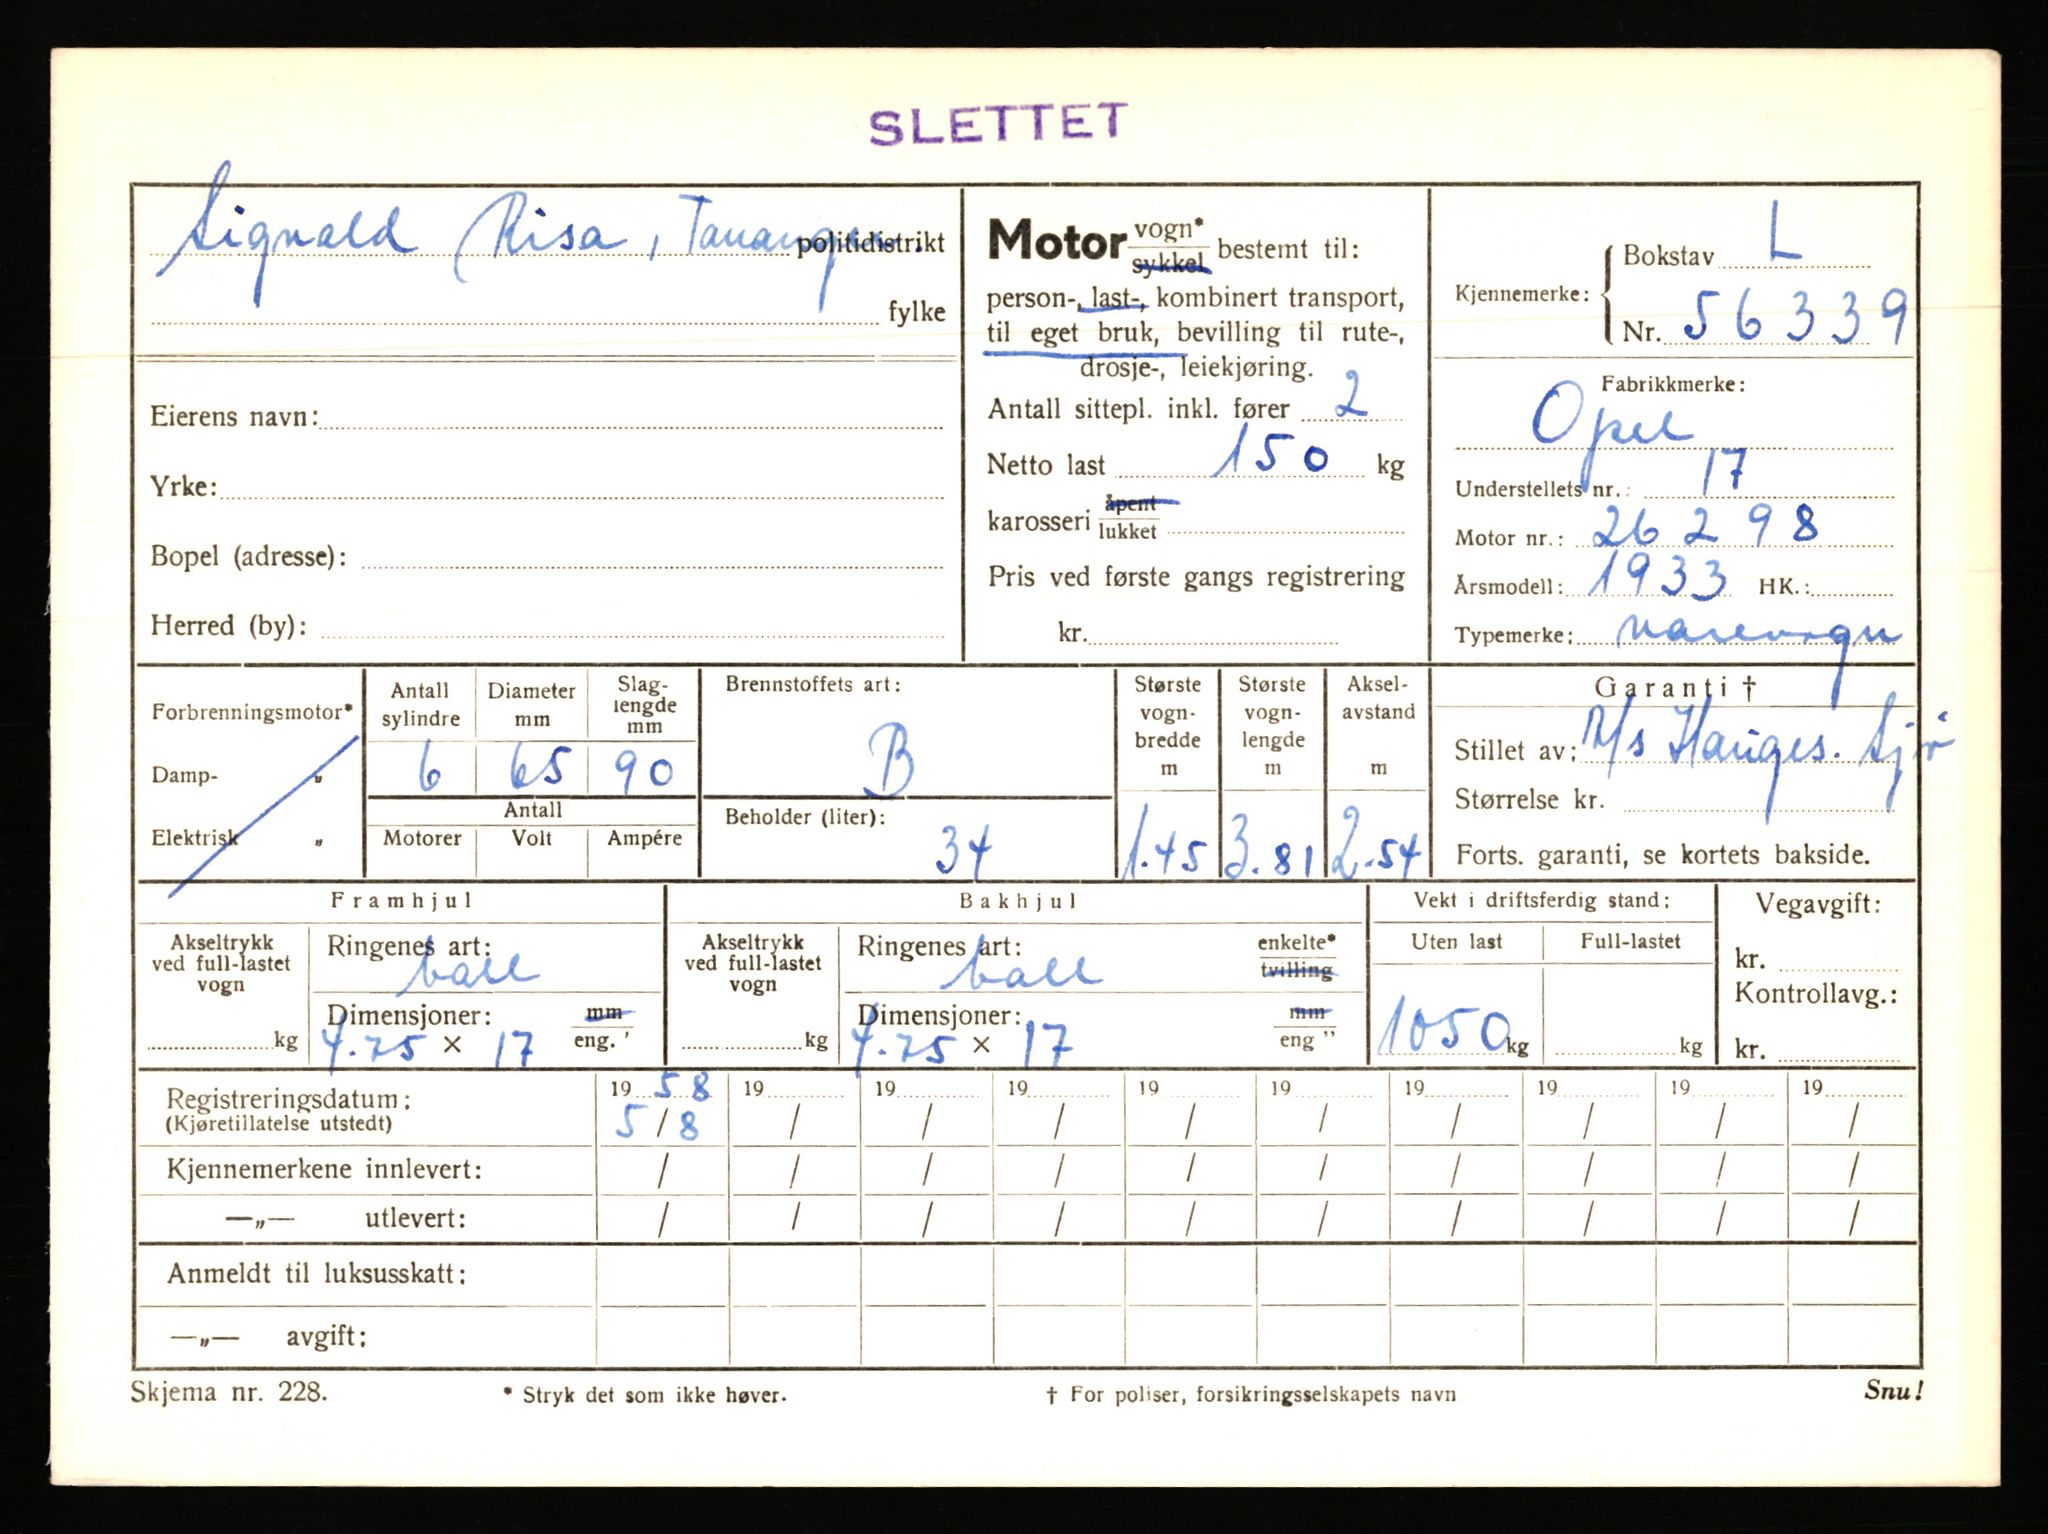 SLETTET
Sigvald Risa, Tananger.
politidistrikt
fylke
Eierens navn:
Yrke:
Bopel (adresse):
Herred (by):
Motor vogn* sykkel bestemt til:
person-, last-, kombinert transport,
til eget bruk, bevilling til rute-,
drosje-, leiekjøring.
Antall sittepl. inkl. fører 2
Netto last 150 kg
karosseri åpent lukket
Pris ved første gangs registrering
kr.
Kjennemerke: Bokstav L
Nr. 56339
Fabrikkmerke:
Opel
Understellets nr.: 17
Motor nr.: 26298
Årsmodell: 1933 HK.:
Typemerke: varevogn
Forbrenningsmotor*
Damp- „
Elektrisk „
Antall sylindre 6
Diameter mm 65
Slag-lengde mm 90
Antall
Motorer Volt Ampére
Brennstoffets art:
B
Beholder (liter):
34
Største vogn-bredde m 1.45
Største vogn-lengde m 3.81
Aksel-avstand m 2.54
Garanti †
Stillet av: A/s Hauges. Sjø
Størrelse kr.
Forts. garanti, se kortets bakside.
Framhjul
Akseltrykk ved full-lastet vogn
kg
Ringenes art:
ball
Dimensjoner: mm eng. '
4.75 × 17
Bakhjul
Akseltrykk ved full-lastet vogn
kg
Ringenes art: enkelte* tvilling
ball
Dimensjoner: mm eng "
4.75 × 17
Vekt i driftsferdig stand:
Uten last Full-lastet
1050 kg kg
Vegavgift:
kr.
Kontrollavg.:
kr.
Registreringsdatum: 19 58 19 19 19 19 19 19 19 19 19
(Kjøretillatelse utstedt) 5/8 / / / / / / / / /
Kjennemerkene innlevert: / / / / / / / / / /
—„— utlevert: / / / / / / / / / /
Anmeldt til luksusskatt:
—„— avgift:
Skjema nr. 228. * Stryk det som ikke høver. † For poliser, forsikringsselskapets navn Snu!